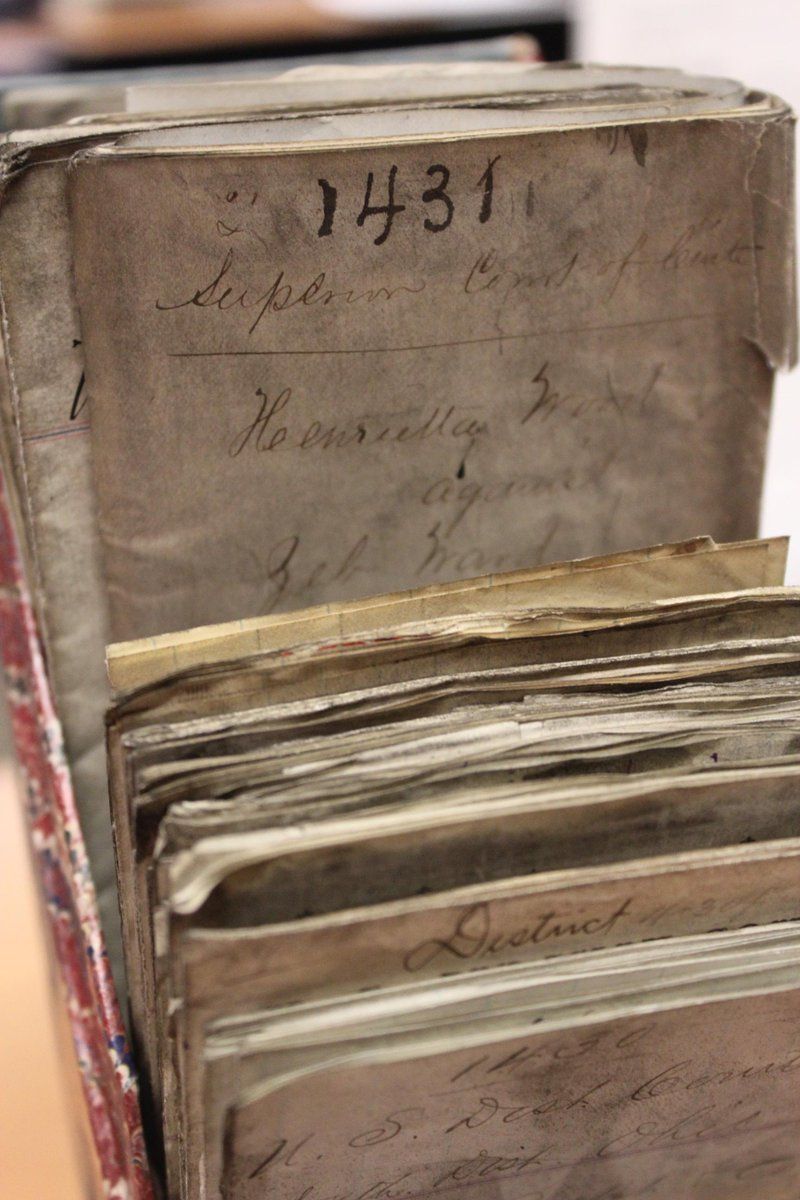 1431
Superior Court of Cinti
Henrietta Wood
against
Zeb Ward
District
1430
U. S. Dist Court
Southn Dist. Ohio